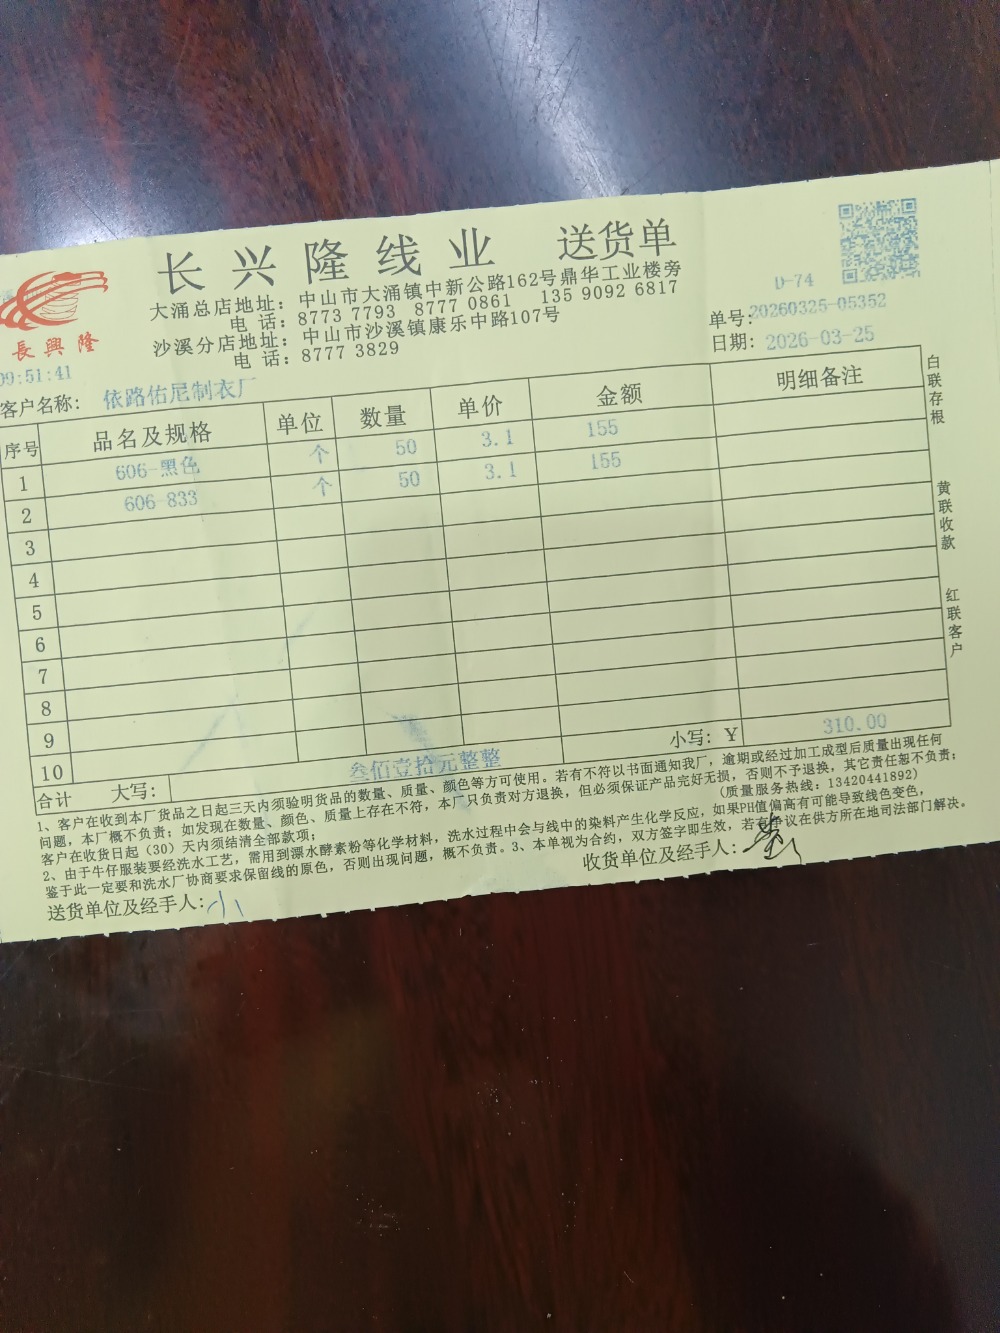 长兴隆线业 送货单
大涌总店地址：中山市大涌镇中新公路162号鼎华工业楼旁
电 话：8773 7793 8777 0861 135 9092 6817
沙溪分店地址：中山市沙溪镇康乐中路107号
电 话：8777 3829
長興隆
09:51:41
D-74
单号：20260325-05352
日期：2026-03-25
客户名称：依路佑尼制衣厂
序号 品名及规格 单位 数量 单价 金额 明细备注
1 606-黑色 个 50 3.1 155
2 606-833 个 50 3.1 155
3
4
5
6
7
8
9
10
合计 大写：叁佰壹拾元整整 小写：Y 310.00
白联存根
黄联收款
红联客户
1、客户在收到本厂货品之日起三天内须验明货品的数量、质量、颜色等方可使用。若有不符以书面通知我厂，逾期或经过加工成型后质量出现任何
问题，本厂概不负责；如发现在数量、颜色、质量上存在不符，本厂只负责对方退换，但必须保证产品完好无损，否则不予退换，其它责任恕不负责；
客户在收货日起（30）天内须结清全部款项； （质量服务热线：13420441892）
2、由于牛仔服装要经洗水工艺，需用到漂水酵素粉等化学材料，洗水过程中会与线中的染料产生化学反应，如果PH值偏高有可能导致线色变色，
鉴于此一定要和洗水厂协商要求保留线的原色，否则出现问题，概不负责。3、本单视为合约，双方签字即生效，若有争议在供方所在地司法部门解决。
送货单位及经手人：小
收货单位及经手人：